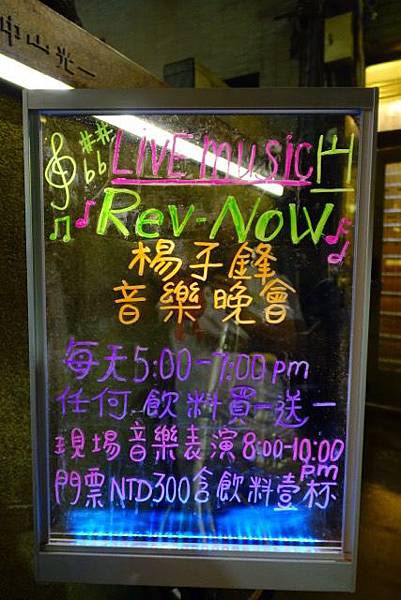 中山光一
LiVE music
Rev-NoW
楊子鋒
音樂晚會
每天5:00-7:00pm
任何飲料買一送一
現場音樂表演8:00-10:00
pm
門票NTD300含飲料壹杯